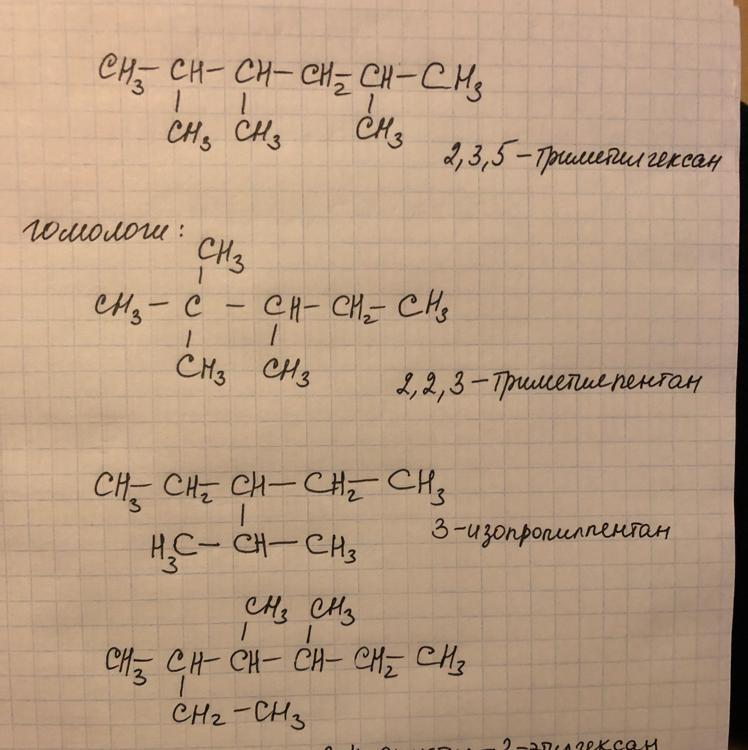 CH₃– CH – CH – CH₂– CH – CH₃
CH₃ CH₃ CH₃
2,3,5 – триметилгексан
гомологи:
CH₃
CH₃ – C – CH – CH₂ – CH₃
CH₃ CH₃
2,2,3 – триметилпентан
CH₃ – CH₂ – CH – CH₂ – CH₃
H₃C – CH – CH₃
3-изопропилпентан
CH₃ CH₃
CH₃ – CH – CH – CH – CH₂ – CH₃
CH₂ – CH₃
-2-этилгексан